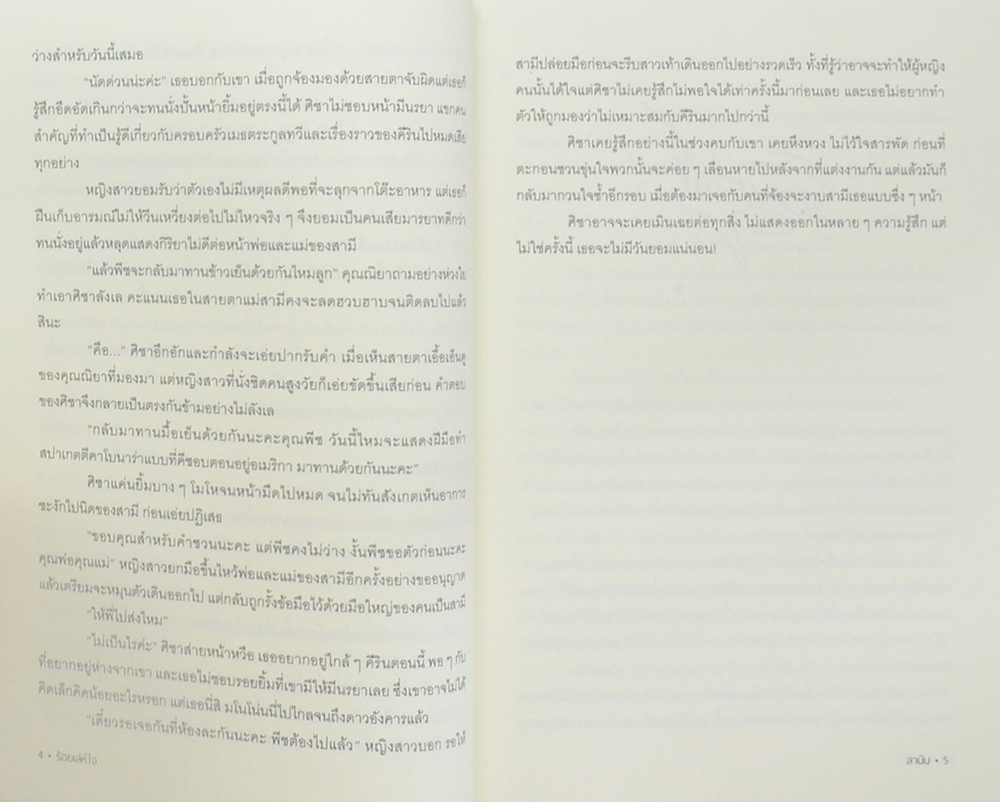 ว่างสำหรับวันนี้เสมอ
"นัดด่วนน่ะค่ะ" เธอบอกกับเขา เมื่อถูกจ้องมองด้วยสายตาจับผิดแต่เธอก็
รู้สึกอึดอัดเกินกว่าจะทนนั่งปั้นหน้ายิ้มอยู่ตรงนี้ได้ ศิชาไม่ชอบหน้ามีนรยา แขกคน
สำคัญที่ทำเป็นรู้ดีเกี่ยวกับครอบครัวเมธตระกูลทวีและเรื่องราวของคีรินไปหมดเสีย
ทุกอย่าง
หญิงสาวยอมรับว่าตัวเองไม่มีเหตุผลดีพอที่จะลุกจากโต๊ะอาหาร แต่เธอก็
ฝืนเก็บอารมณ์ไม่ให้วีนเหวี่ยงต่อไปไม่ไหวจริง ๆ จึงยอมเป็นคนเสียมารยาทดีกว่า
ทนนั่งอยู่แล้วหลุดแสดงกิริยาไม่ดีต่อหน้าพ่อและแม่ของสามี
"แล้วพีชจะกลับมาทานข้าวเย็นด้วยกันไหมลูก" คุณณิยาถามอย่างห่วงใย
ทำเอาศิชาลังเล คะแนนเธอในสายตาแม่สามีคงจะลดฮวบฮาบจนติดลบไปแล้ว
สินะ
"คือ..." ศิชาอึกอักและกำลังจะเอ่ยปากรับคำ เมื่อเห็นสายตาเอื้อเอ็นดู
ของคุณณิยาที่มองมา แต่หญิงสาวที่นั่งชิดคนสูงวัยก็เอ่ยขัดขึ้นเสียก่อน คำตอบ
ของศิชาจึงกลายเป็นตรงกันข้ามอย่างไม่ลังเล
"กลับมาทานมื้อเย็นด้วยกันนะคะคุณพีช วันนี้ไหมจะแสดงฝีมือทำ
สปาเกตตีคาโบนาร่าแบบที่คีชอบตอนอยู่อเมริกา มาทานด้วยกันนะคะ"
ศิชาแค่นยิ้มบาง ๆ โมโหจนหน้ามืดไปหมด จนไม่ทันสังเกตเห็นอาการ
ชะงักไปนิดของสามี ก่อนเอ่ยปฏิเสธ
"ขอบคุณสำหรับคำชวนนะคะ แต่พีชคงไม่ว่าง งั้นพีชขอตัวก่อนนะคะ
คุณพ่อคุณแม่" หญิงสาวยกมือขึ้นไหว้พ่อและแม่ของสามีอีกครั้งอย่างขออนุญาต
แล้วเตรียมจะหมุนตัวเดินออกไป แต่กลับถูกรั้งข้อมือไว้ด้วยมือใหญ่ของคนเป็นสามี
"ให้พี่ไปส่งไหม"
"ไม่เป็นไรค่ะ" ศิชาส่ายหน้าหวือ เธออยากอยู่ใกล้ ๆ คีรินตอนนี้ พอ ๆ กับ
ที่อยากอยู่ห่างจากเขา และเธอไม่ชอบรอยยิ้มที่เขามีให้มีนรยาเลย ซึ่งเขาอาจไม่ได้
คิดเล็กคิดน้อยอะไรหรอก แต่เธอนี่สิ มโนโน่นนี่ไปไกลจนถึงดาวอังคารแล้ว
"เดี๋ยวรอเจอกันที่ห้องละกันนะคะ พีชต้องไปแล้ว" หญิงสาวบอก รอให้
4 • ร้อยเล่ห์ใจ
สามีปล่อยมือก่อนจะรีบสาวเท้าเดินออกไปอย่างรวดเร็ว ทั้งที่รู้ว่าอาจจะทำให้ผู้หญิง
คนนั้นได้ใจแต่ศิชาไม่เคยรู้สึกไม่พอใจได้เท่าครั้งนี้มาก่อนเลย และเธอไม่อยากทำ
ตัวให้ถูกมองว่าไม่เหมาะสมกับคีรินมากไปกว่านี้
ศิชาเคยรู้สึกอย่างนี้ในช่วงคบกับเขา เคยหึงหวง ไม่ไว้ใจสารพัด ก่อนที่
ตะกอนชวนขุ่นใจพวกนั้นจะค่อย ๆ เลือนหายไปหลังจากที่แต่งงานกัน แต่แล้วมันก็
กลับมากวนใจซ้ำอีกรอบ เมื่อต้องมาเจอกับคนที่จ้องจะงาบสามีเธอแบบซึ่ง ๆ หน้า
ศิชาอาจจะเคยเมินเฉยต่อทุกสิ่ง ไม่แสดงออกในหลาย ๆ ความรู้สึก แต่
ไม่ใช่ครั้งนี้ เธอจะไม่มีวันยอมแน่นอน!
ลามีน • 5